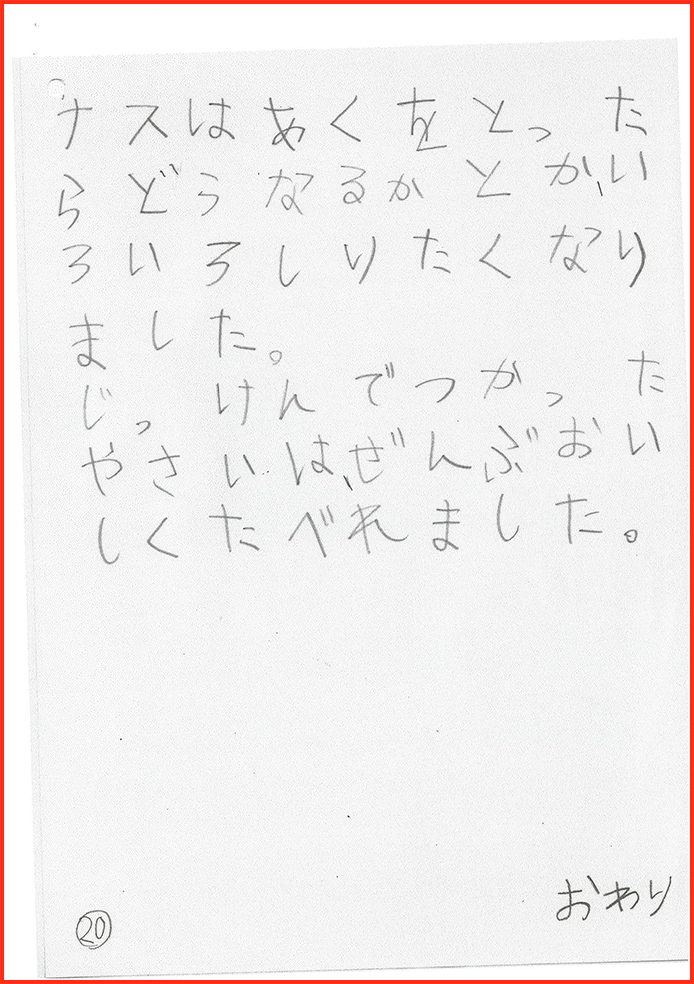 ナスはあくをとった
らどうなるかとか、い
ろいろしりたくなり
ました。
じっけんでつかった
やさいは、ぜんぶおい
しくたべれました。
おわり
20